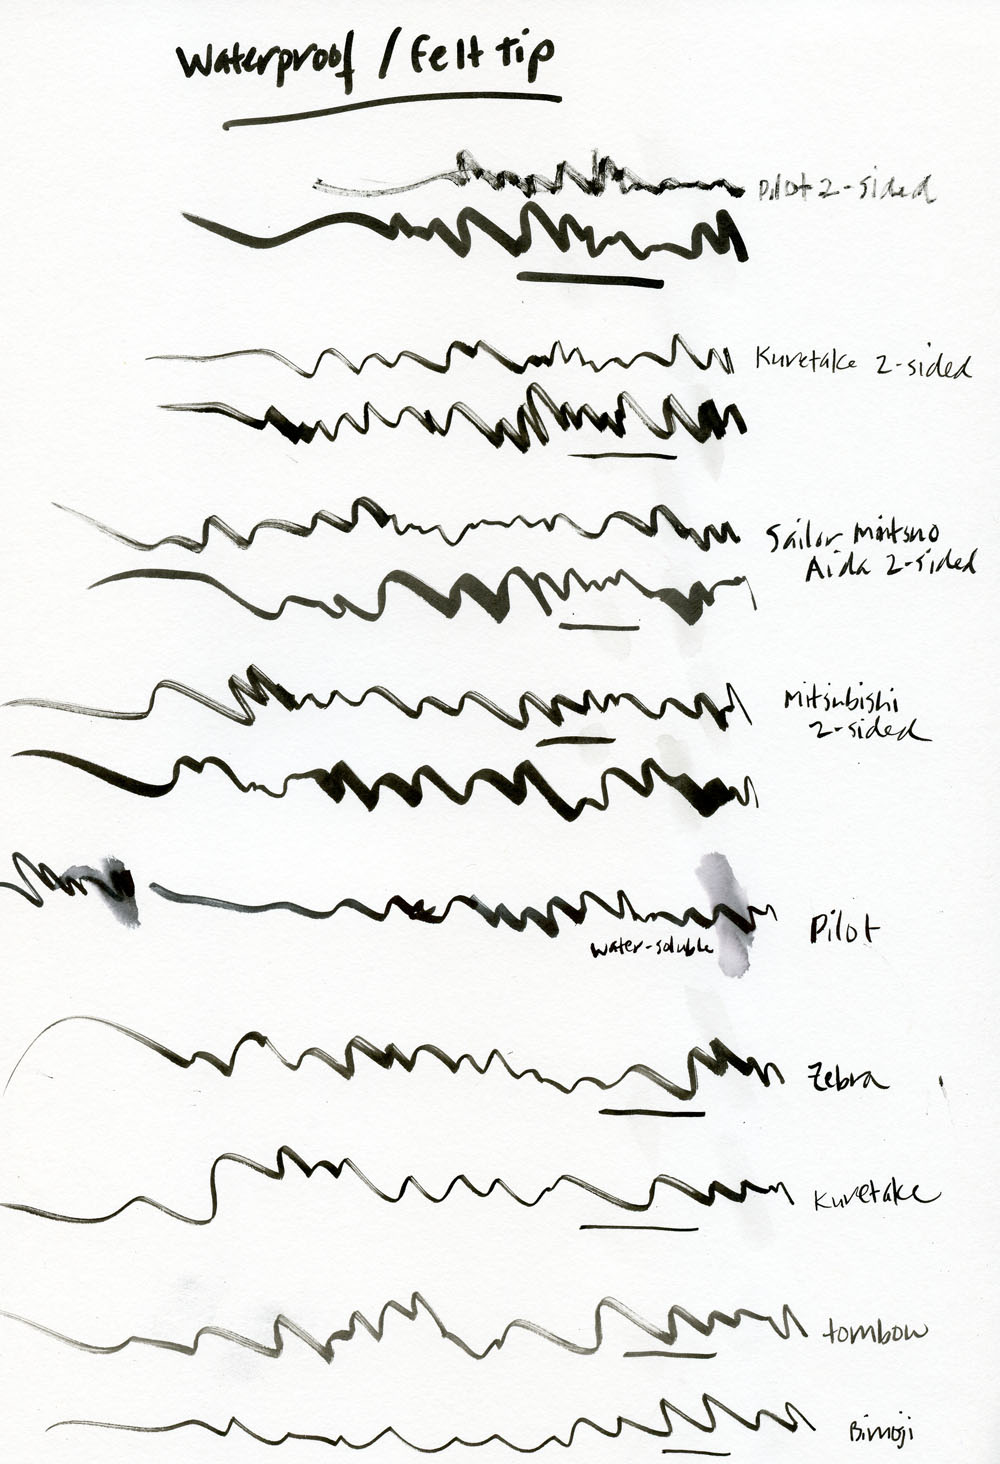 Waterproof / Felt tip
Pilot 2-sided
Kuretake 2-sided
Sailor Mitsuo
Aida 2-sided
Mitsubishi
2-sided
Pilot
water-soluble
Zebra
Kuretake
tombow
Bimoji